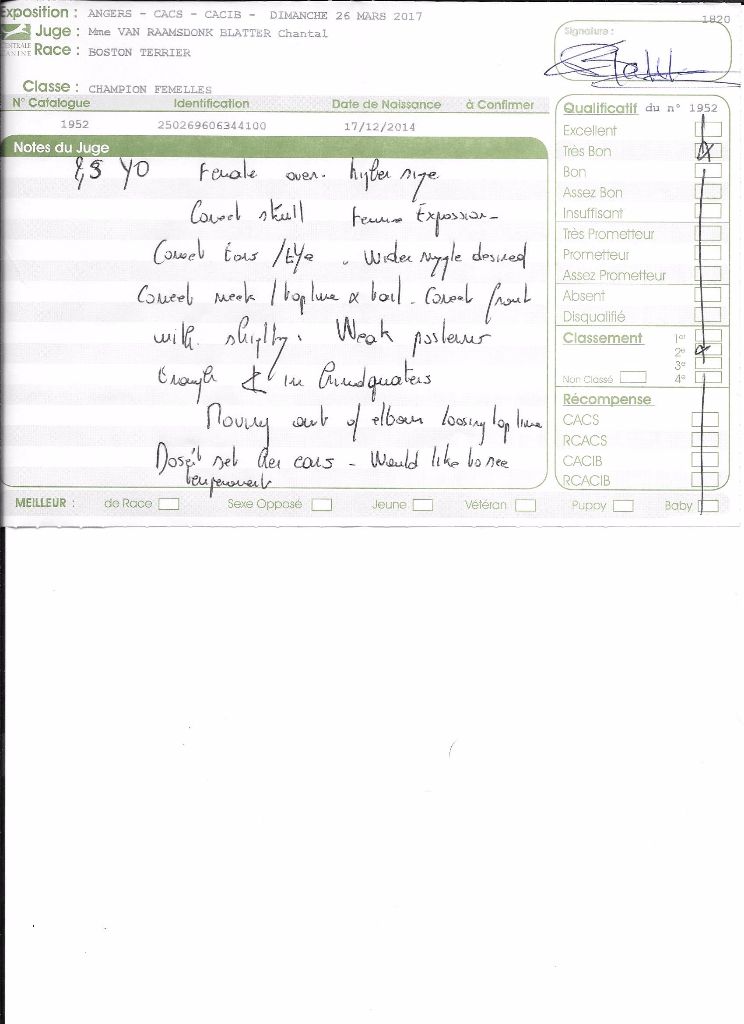 Exposition : ANGERS - CACS - CACIB - DIMANCHE 26 MARS 2017
1820
Juge : Mme VAN RAAMSDONK BLATTER Chantal
CENTRALE CANINE
Race : BOSTON TERRIER
Signature :
Classe : CHAMPION FEMELLES
N° Catalogue Identification Date de Naissance à Confirmer
1952 250269606344100 17/12/2014
Notes du Juge
YO Female over. higher size.
Correct skull Femine Expression-
Correct Ears / Eye . Wider muzzle desired
Correct neck / topline & tail. Correct front
with. Weak posterior
Enough in hindquaters
Moving out of elbow loosing top line
Dose't set her ears - Would like to see
temperament
Qualificatif du n° 1952
Excellent
Très Bon
Bon
Assez Bon
Insuffisant
Très Prometteur
Prometteur
Assez Prometteur
Absent
Disqualifié
Classement 1er
2e
3e
Non Classé 4e
Récompense
CACS
RCACS
CACIB
RCACIB
MEILLEUR : de Race Sexe Opposé Jeune Vétéran Puppy Baby